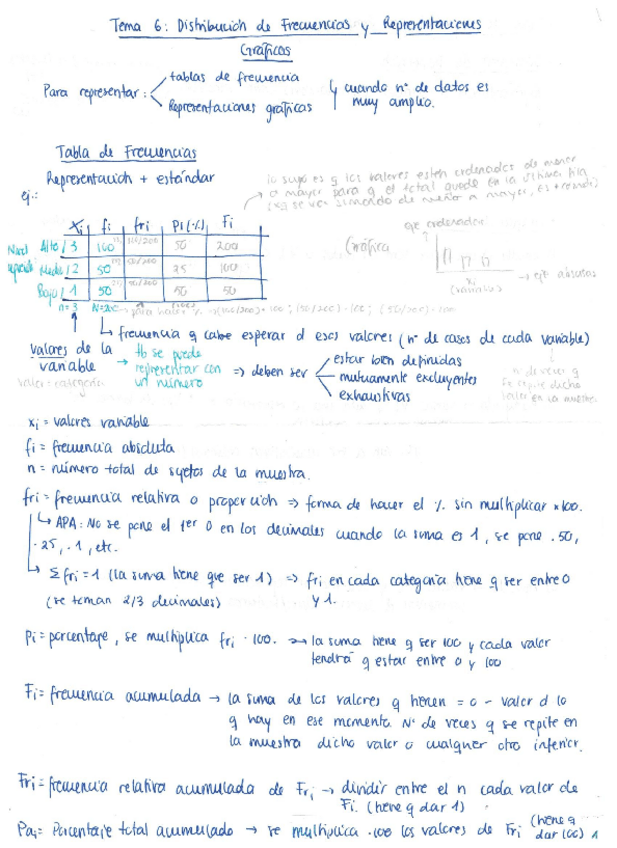 Tema 6: Distribución de Frecuencias y Representaciones
Gráficas
Para representar:
tablas de frecuencia
Representaciones gráficas
cuando nº de datos es
muy amplio.
Tabla de Frecuencias
Representación + estándar
ej.:
lo supo es q los valores estén ordenados de menor
a mayor para q el total quede en la última fila
Xi fi fri Pi (%) Fi
Nivel
Alto / 3 100 100/200 50 200
Medio / 2 50 50/200 25 100
Bajo / 1 50 50/200 50 50
n = 3
Gráfica
eje ordenadas
xi
(variable)
→ eje abscisas
→ para hacer % → (100/200) · 100 ; (50/200) · 100 ; (50/200) · 100
frecuencia q cabe esperar d esos valores (nº de casos de cada variable)
Valores de la
variable
valor = categoría
→ tb se puede
representar con
un número
⇒ deben ser
estar bien definidas
mutuamente excluyentes
exhaustivas
n de veces q
se repite dicho
valor en la muestra
xi = valores variable
fi = frecuencia absoluta
n = número total de sujetos de la muestra.
fri = frecuencia relativa o proporción ⇒ forma de hacer el % sin multiplicar ×100.
↳ APA: No se pone el 1er 0 en los decimales cuando la suma es 1, se pone .50,
.25, .1, etc.
→ Σfri = 1 (la suma tiene que ser 1) ⇒ fri en cada categoría tiene q ser entre 0
(se toman 2/3 decimales) y 1.
Pi = porcentaje, se multiplica fri · 100. → la suma tiene q ser 100 y cada valor
tendrá q estar entre 0 y 100
Fi = frecuencia acumulada → la suma de los valores q tienen = o - valor d lo
q hay en ese momento Nº de veces q se repite en
la muestra dicho valor o cualquier otro inferior.
Fri = frecuencia relativa acumulada de Fri → dividir entre el n cada valor de
Fi. (tiene q dar 1)
Pai = Porcentaje total acumulado → se multiplica ·100 los valores de Fri (tiene q
dar 100)